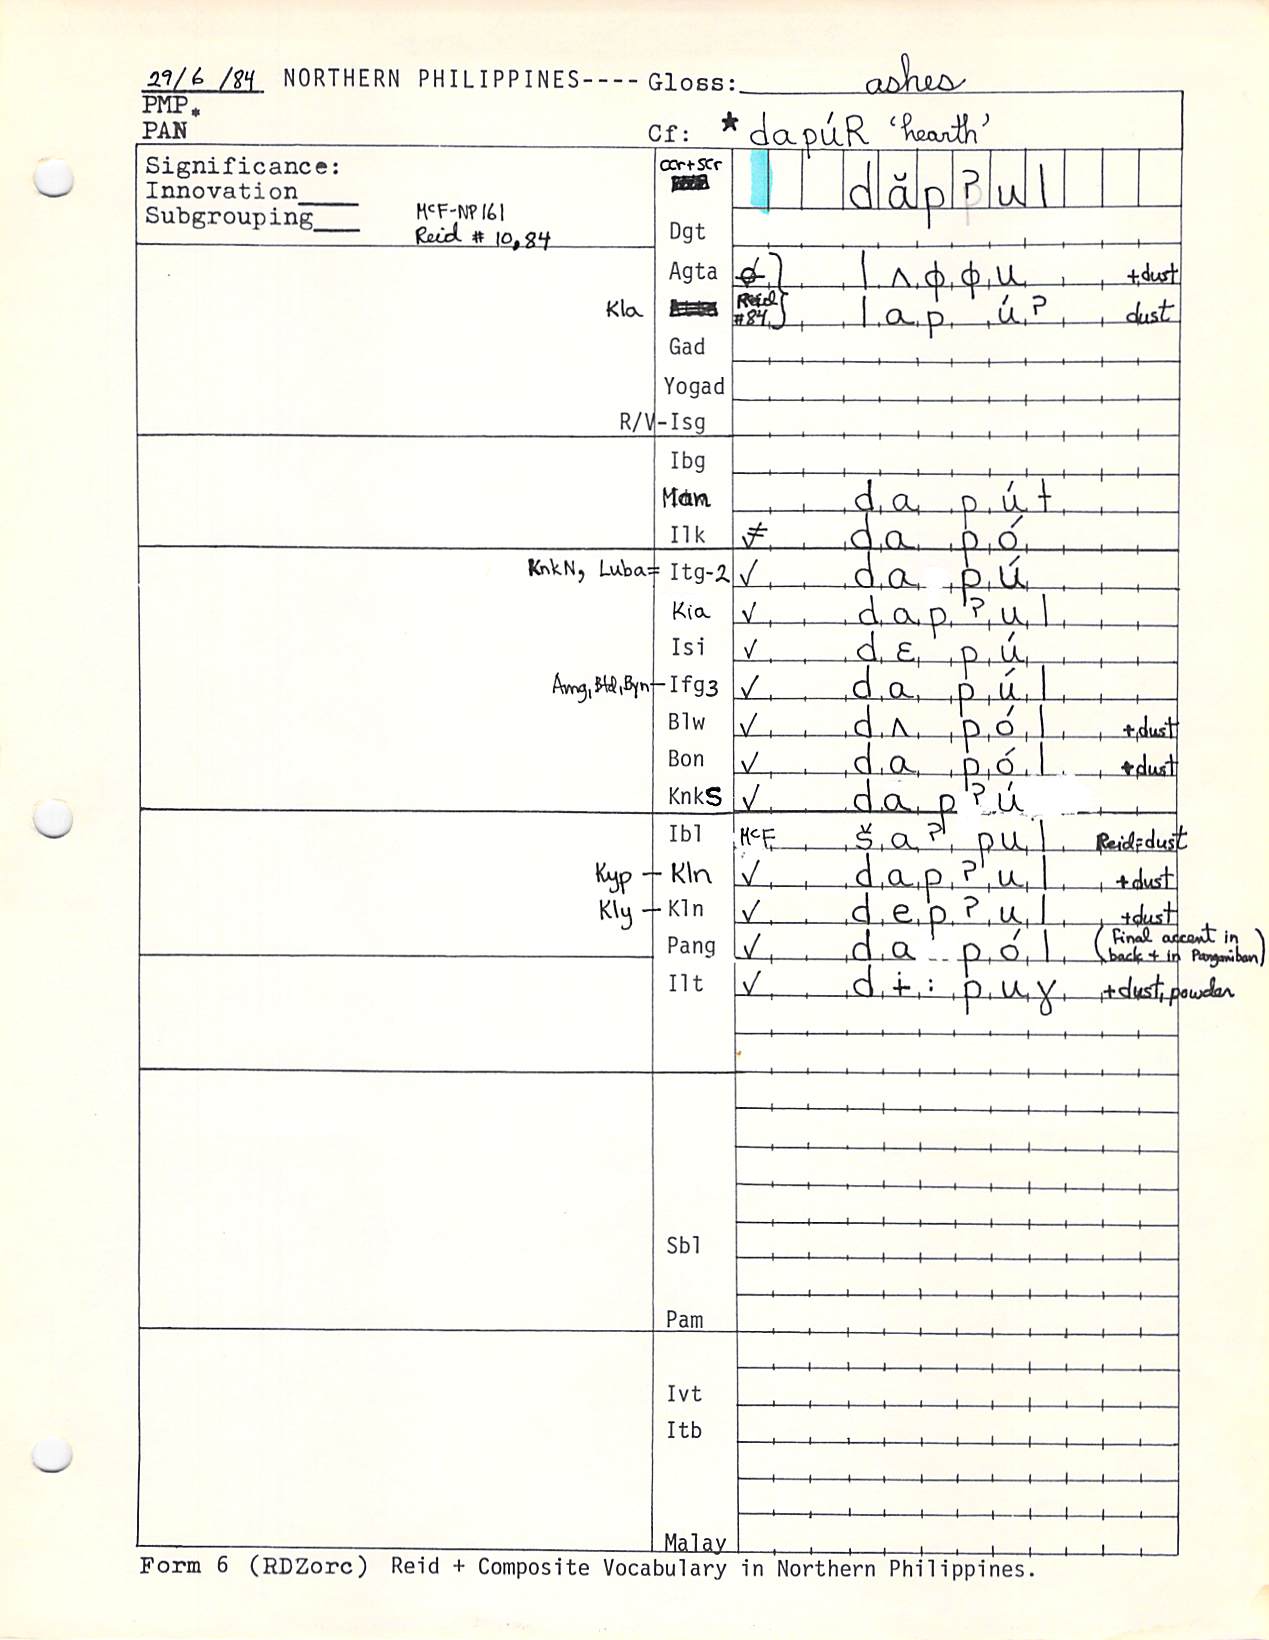 29/6/84 NORTHERN PHILIPPINES---- Gloss: ashes
PMP*
PAN Cf: * dapúR ‘hearth’
Significance: ccr+scr dăpʔul
Innovation____
Subgrouping___ McF-NP161
Reid # 10,84
Dgt
Agta ɸ lʌɸɸu +dust
Kla Reid #84 lapúʔ dust
Gad
Yogad
R/V-Isg
Ibg
Man dapút
Ilk ≠ dapó
KnkN, Luba= Itg-2 ✓ dapú
Kia ✓ dapʔul
Isi ✓ dɛpú
Amg, Btd, Byn— Ifg3 ✓ dapúl
Blw ✓ dʌpól +dust
Bon ✓ dapól +dust
KnkS ✓ dapʔú
Ibl McF šaʔpul Reid=dust
Kyp — Kln ✓ dapʔul +dust
Kly — Kln ✓ depʔul +dust
Pang ✓ dapól (Final accent in back + in Panganiban)
Ilt ✓ dɨ:puɣ +dust, powder
Sbl
Pam
Ivt
Itb
Malay
Form 6 (RDZorc) Reid + Composite Vocabulary in Northern Philippines.